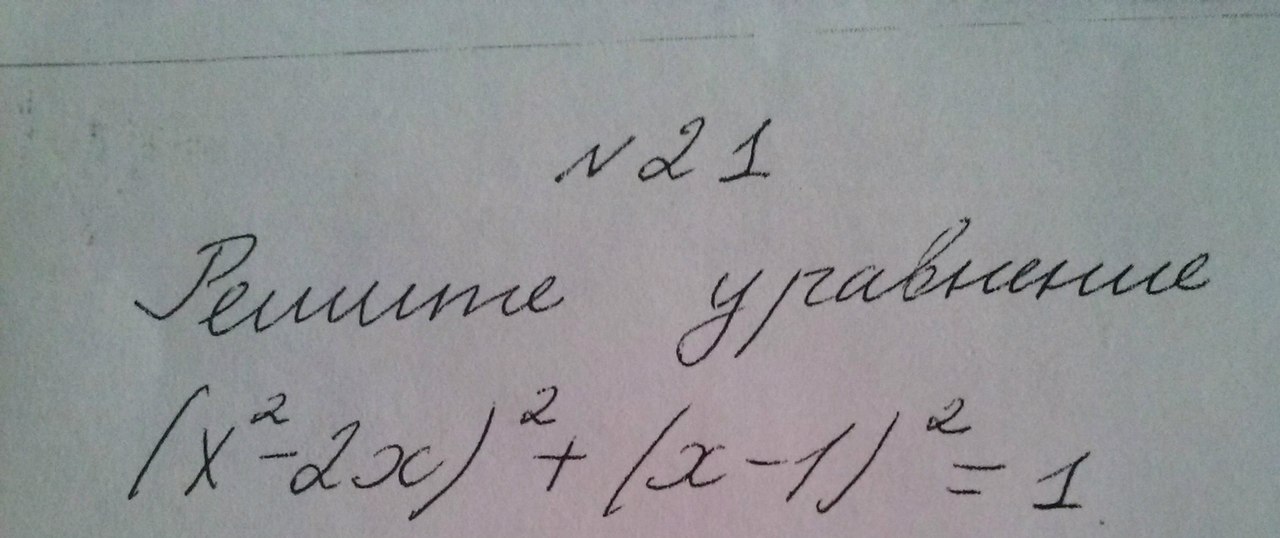 N 21
Решите уравнение
(x²-2x)²+(x-1)²=1